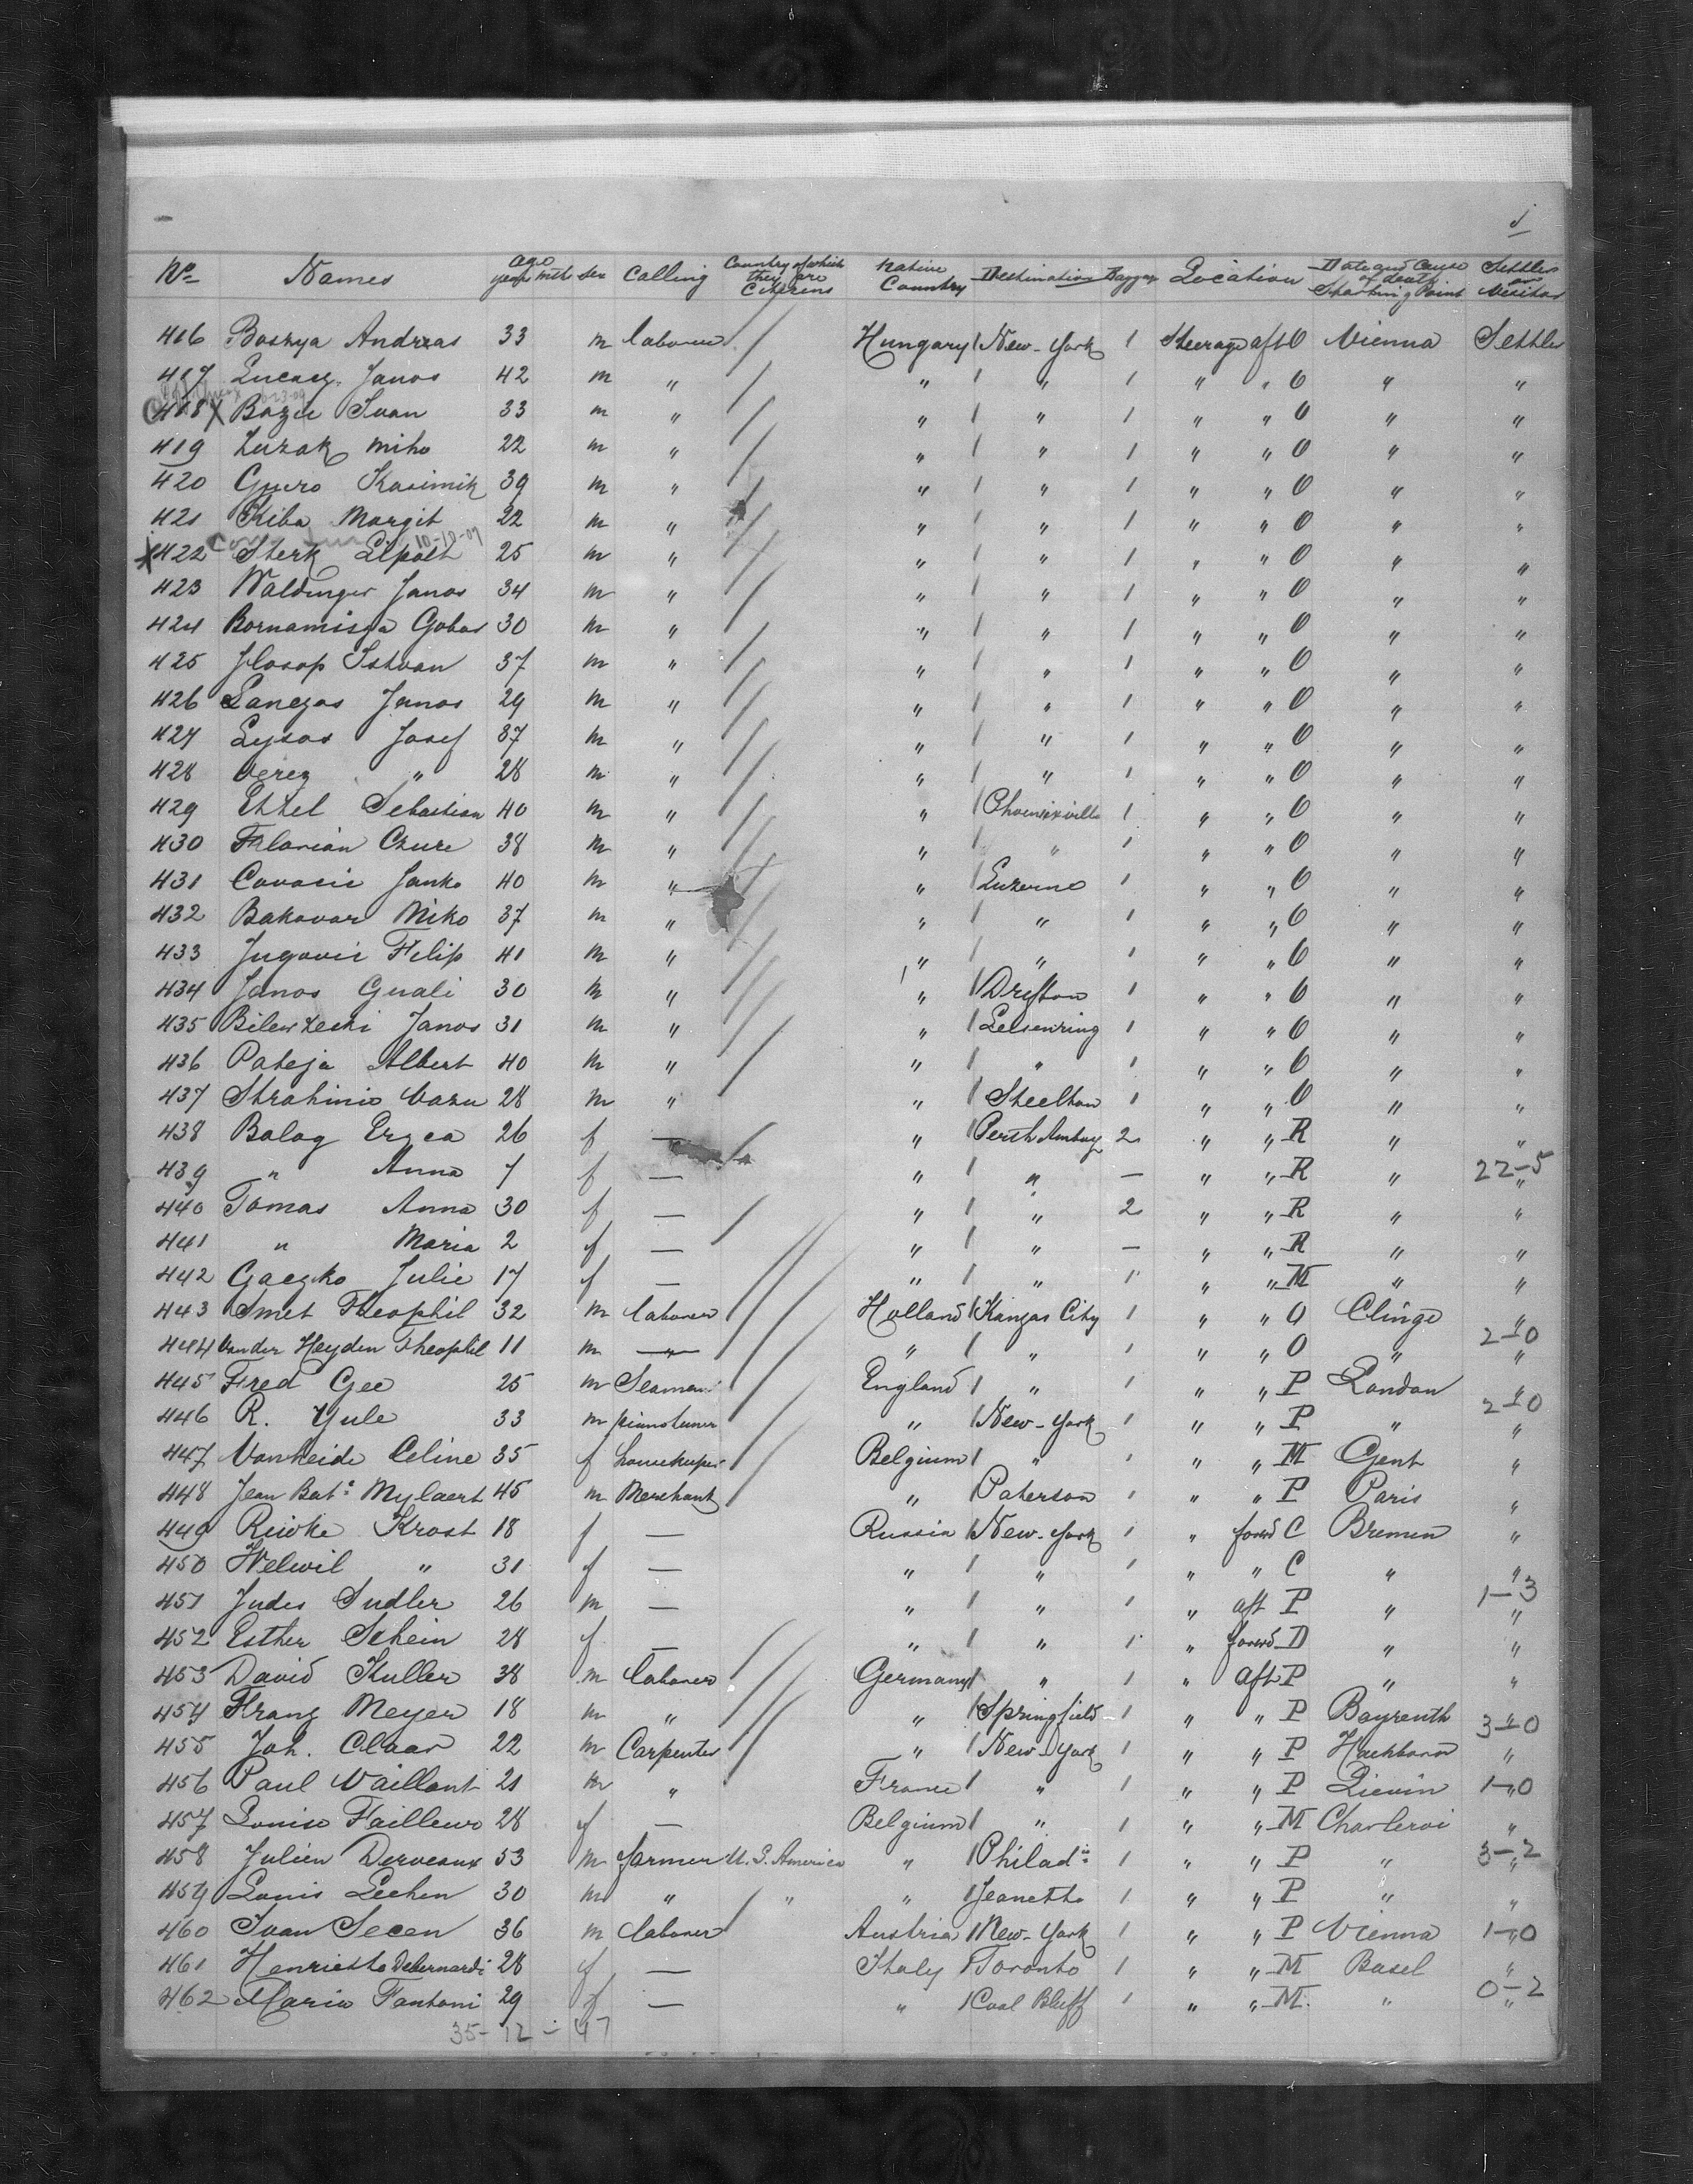 No Names age year mth sex Calling Country of which they are Citizens Native Country Destination Baggage Location Date and Cause of death Starting Point Settler or Visitor
416 Andreas 33 m laborer Hungary New-York 1 Steerage aft O Vienna Settler
417 Janos 42 m " " " 1 " " O " "
418 X Bazu Ivan 33 m " " " 1 " " O " "
419 Zuzak Miho 22 m " " " 1 " " O " "
420 Kasimik 39 m " " " 1 " " O " "
421 Kiba Margit 22 m " " " 1 " " O " "
10-19-07
X 422 Sterk Lipolt 25 m " " " 1 " " O " "
423 Waldinger Janos 34 m " " " 1 " " O " "
424 Bornamisza 30 m " " " 1 " " O " "
425 Istvan 37 m " " " 1 " " O " "
426 Janos 29 m " " " 1 " " O " "
427 Josef 37 m " " " 1 " " O " "
428 Verez " 28 m " " " 1 " " O " "
429 Sebastian 40 m " " Phoenixville 1 " " O " "
430 Florian Czure 38 m " " " 1 " " O " "
431 Janko 40 m " " Luzerne 1 " " O " "
432 Bakavar Miko 37 m " " " 1 " " O " "
433 Jugovic Filip 41 m " " " 1 " " O " "
434 Janos Guali 30 m " " Drifton 1 " " O " "
435 Janos 31 m " " Leisenring 1 " " O " "
436 Pateja Albert 40 m " " " 1 " " O " "
437 Strahinic 28 m " " Steelton 1 " " O " "
438 Balog 26 f — " Perth Amboy 2 " " R " "
439 " Anna 7 f — " " — " " R " 22-5 "
440 Tomas Anna 30 f — " " 2 " " R " "
441 " Maria 2 f — " " — " " R " "
442 Gaczko Julie 17 f — " " 1 " " M " "
443 Smet Theophil 32 m laborer Holland Kanzas City 1 " " O Clinge "
444 Van der Heyden Theophil 11 m — " — " " 1 " " O " 2-0 "
445 Fred Gee 25 m Seaman England " 1 " " P London "
446 R. Yule 33 m pianotuner " New-York 1 " " P " 2-0 "
447 Vanheide Celine 35 f housekeeper Belgium " 1 " " M Gent "
448 Jean Bat. Mylaert 45 m Merchant " Paterson 1 " " P Paris "
449 Riwke Krost 18 f — Russia New-York 1 " forwd C Bremen "
450 Welwil " 31 f — " " 1 " " C " "
451 Judes Sudler 26 m — " " 1 " aft P " 1-3 "
452 Esther Schein 28 f — " " 1 " forwd D " "
453 David Kuller 38 m laborer Germany " 1 " aft P " "
454 Franz Meyer 18 m " " Springfield 1 " " P Bayreuth "
455 Joh. Claar 22 m Carpenter " New-York 1 " " P 3-0 "
456 Paul Vaillant 21 m " France " 1 " " P Lievin 1-0 "
457 Louise 28 f — Belgium " 1 " " M Charleroi "
458 Julien Derveaux 53 m farmer U. S. America " Philada 1 " " P " 3-2 "
459 Louis Lechen 30 m " " " Jeanette 1 " " P " "
460 Ivan Secen 36 m laborer Austria New-York 1 " " P Vienna 1-0 "
461 Henriette Debernardi 28 f — Italy Toronto 1 " " M Basel "
462 Maria Fantoni 29 f — " Coal Bluff 1 " " M " 0-2 "
35-12 = 47